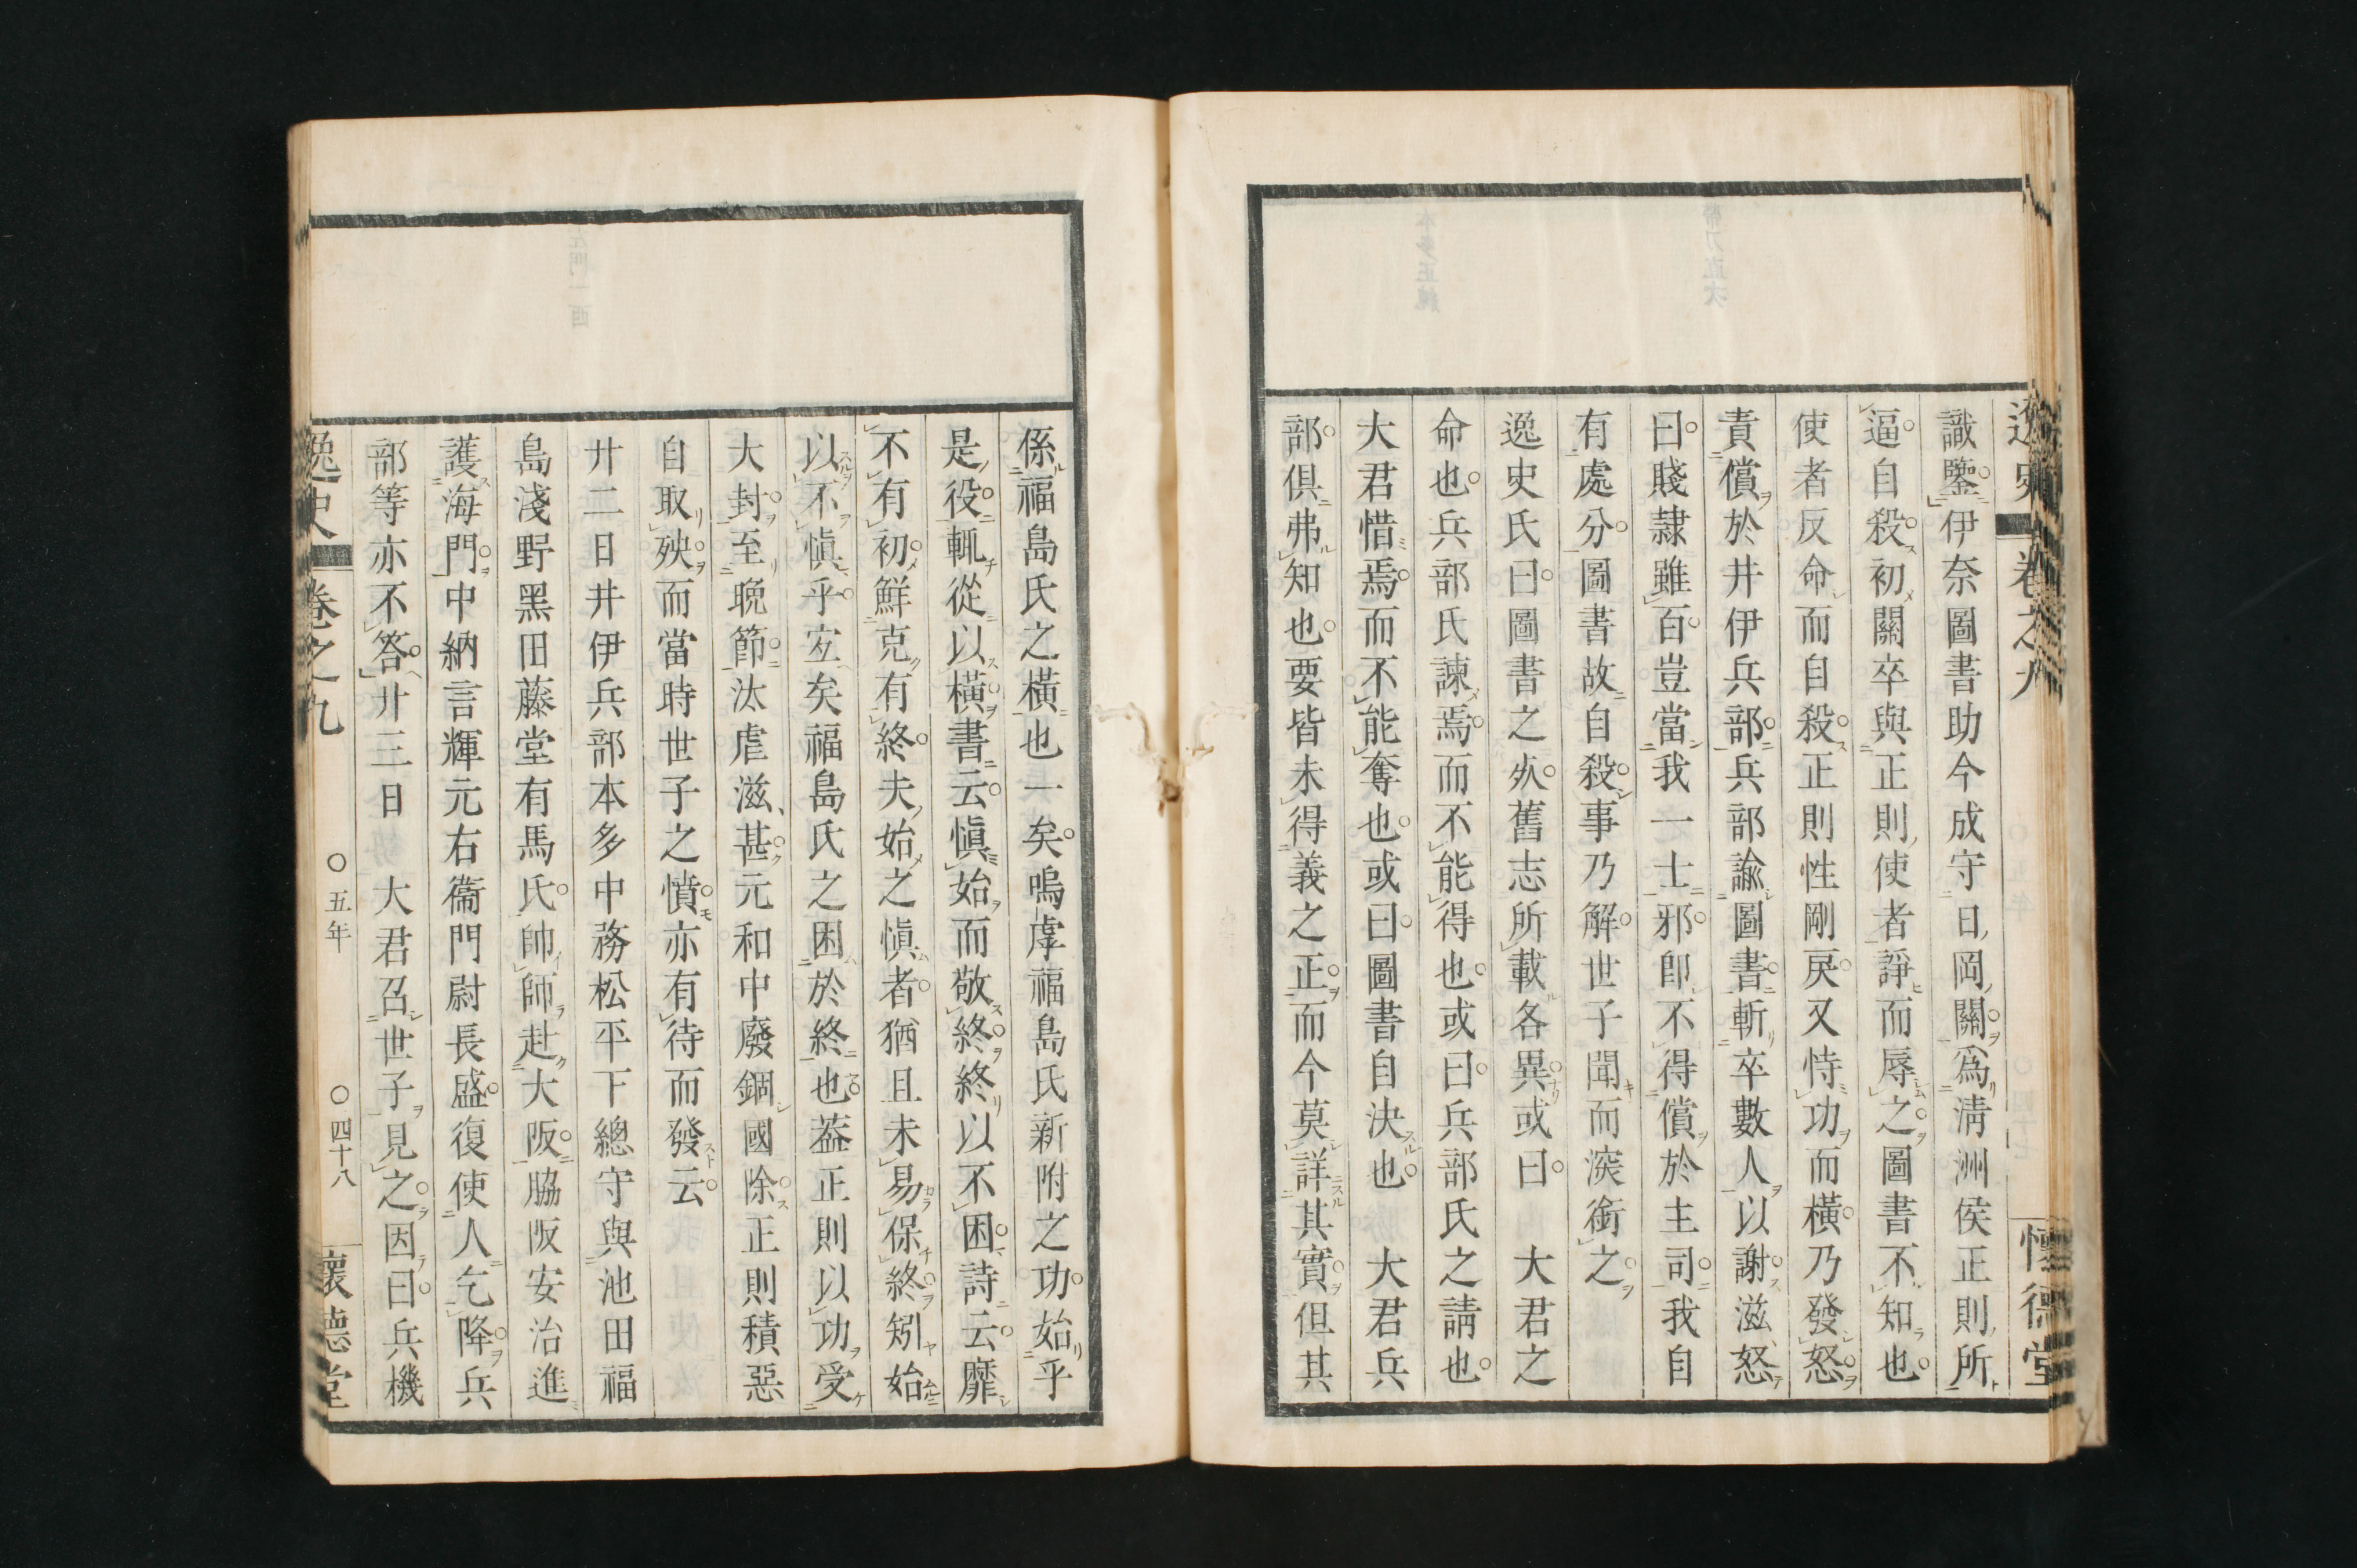 逸史 卷之九 懷德堂
識鑒伊奈圖書助今成守日岡關爲淸洲侯正則所
逼自殺初關卒與正則使者諍而辱之圖書不知也
使者反命而自殺正則性剛戾又恃功而橫乃發怒
責償於井伊兵部兵部諭圖書斬卒數人以謝滋怒
曰賤隷雖百豈當我一士邪卽不得償於主司我自
有處分圖書故自殺事乃解世子聞而深銜之
逸史氏曰圖書之㱙舊志所載各異或曰 大君之
命也兵部氏諫焉而不能得也或曰兵部氏之請也
大君惜焉而不能奪也或曰圖書自決也 大君兵
部俱弗知也要皆未得義之正而今莫詳其實但其
係福島氏之橫也一矣嗚虖福島氏新附之功始乎
是役輒從以橫書云愼始而敬終終以不困詩云靡
不有初鮮克有終夫始之愼者猶且未易保終矧始
以不愼乎宐矣福島氏之困於終也葢正則以功受
大封至晩節汰虐滋甚元和中廢錮國除正則積惡
自取殃而當時世子之憤亦有待而發云
廿二日井伊兵部本多中務松平下總守與池田福
島淺野黑田藤堂有馬氏帥師赴大阪脇阪安治進
護海門中納言輝元右衞門尉長盛復使人乞降兵
部等亦不答廿三日 大君召世子見之因曰兵機
逸史 卷之九 ○五年 ○四十八 懷德堂